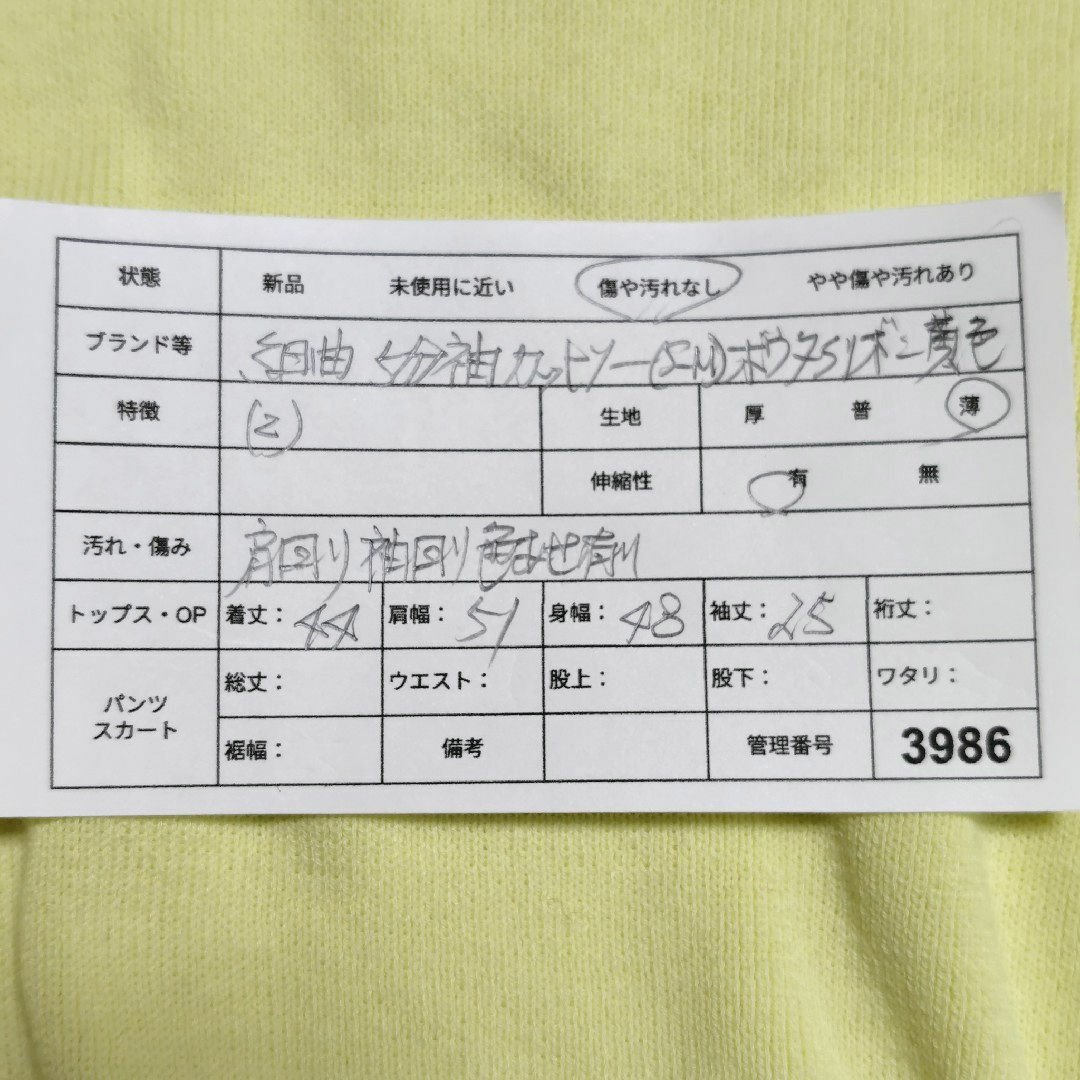 状態 新品 未使用に近い 傷や汚れなし やや傷や汚れあり
ブランド等 組曲 5分袖カットソー(S-M)ボウタイリボン 黄色
特徴 (2) 生地 厚 普 薄
伸縮性 有 無
汚れ・傷み 肩回り 袖回り 色あせ有り
トップス・OP 着丈：44 肩幅：51 身幅：48 袖丈：25 裄丈：
パンツ スカート 総丈： ウエスト： 股上： 股下： ワタリ：
裾幅： 備考 管理番号 3986